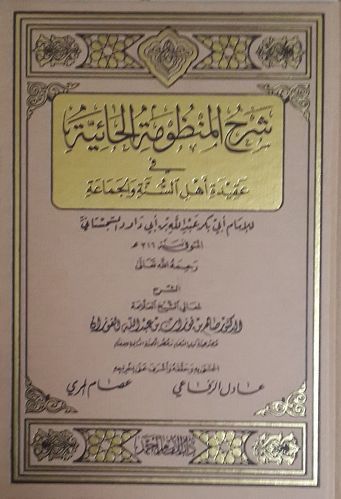 شرح المنظومة الحائية
في
عقيدة أهل السنة والجماعة
للإمام أبي بكر عبد الله بن أبي داود السجستاني
المتوفى سنة ٣١٦ هـ
رحمه الله تعالى
الشرح
لمعالي الشيخ العلامة
الدكتور صالح بن فوزان بن عبد الله الفوزان
عادل الرفاعي عصام المري